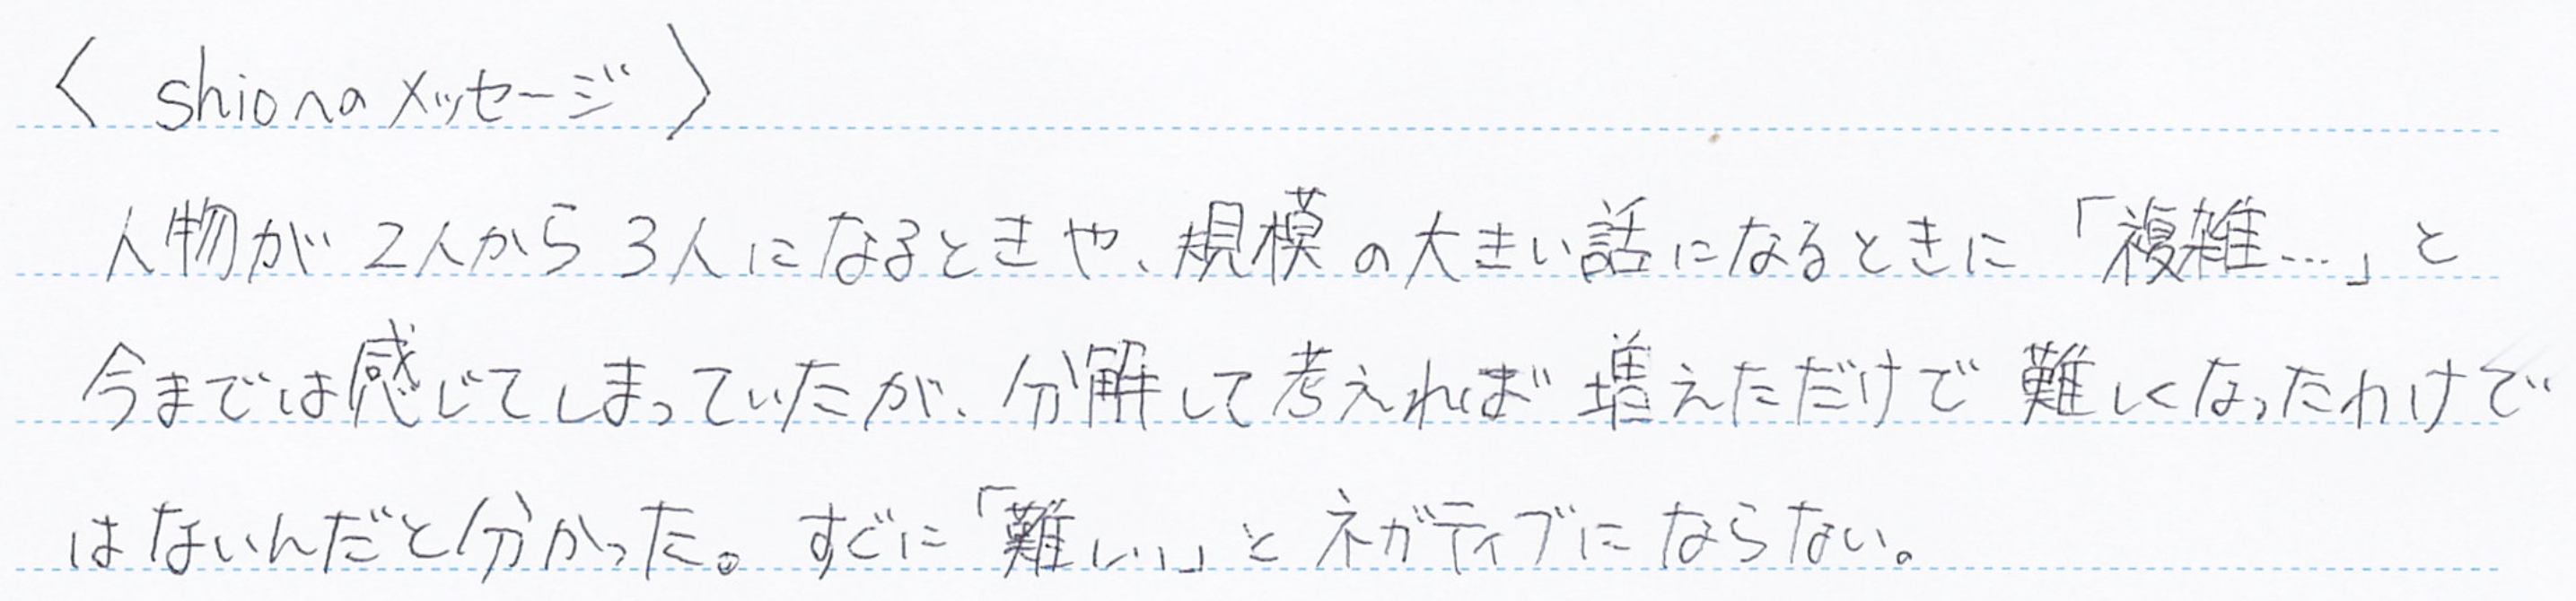 〈 shionaメッセージ 〉
人物が2人から3人になるときや、規模の大きい話になるときに「複雑…」と
今までは感じてしまっていたが、分解して考えれば増えただけで難しくなったわけで
はないんだと分かった。すぐに「難しい」とネガティブにならない。